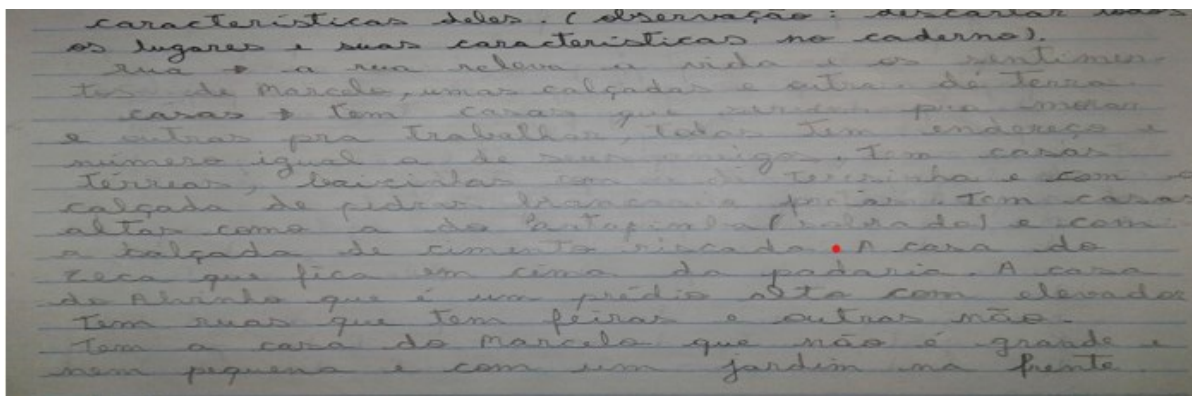 características deles. (observação: descartar todos
os lugares e suas características no caderno).
rua → a rua releva a vida e os sentimen-
tos de Marcelo, umas calçadas e outra de terra
casas → tem casas que servem pra morar
e outras pra trabalhar, todas tem endereço e
número igual a de seus amigos. Tem casas
térreas, baixinhas como a de Terezinha e com a
calçada de pedras brancas e pretas. Tem casas
altas como a do Catapimba (sobrado) e com
a calçada de cimento riscado. A casa do
Zeca que fica em cima da padaria. A casa
do Alvinho que é um prédio alto com elevador
Tem ruas que tem feiras e outras não.
Tem a casa do Marcelo que não é grande e
nem pequena e com um jardim na frente.